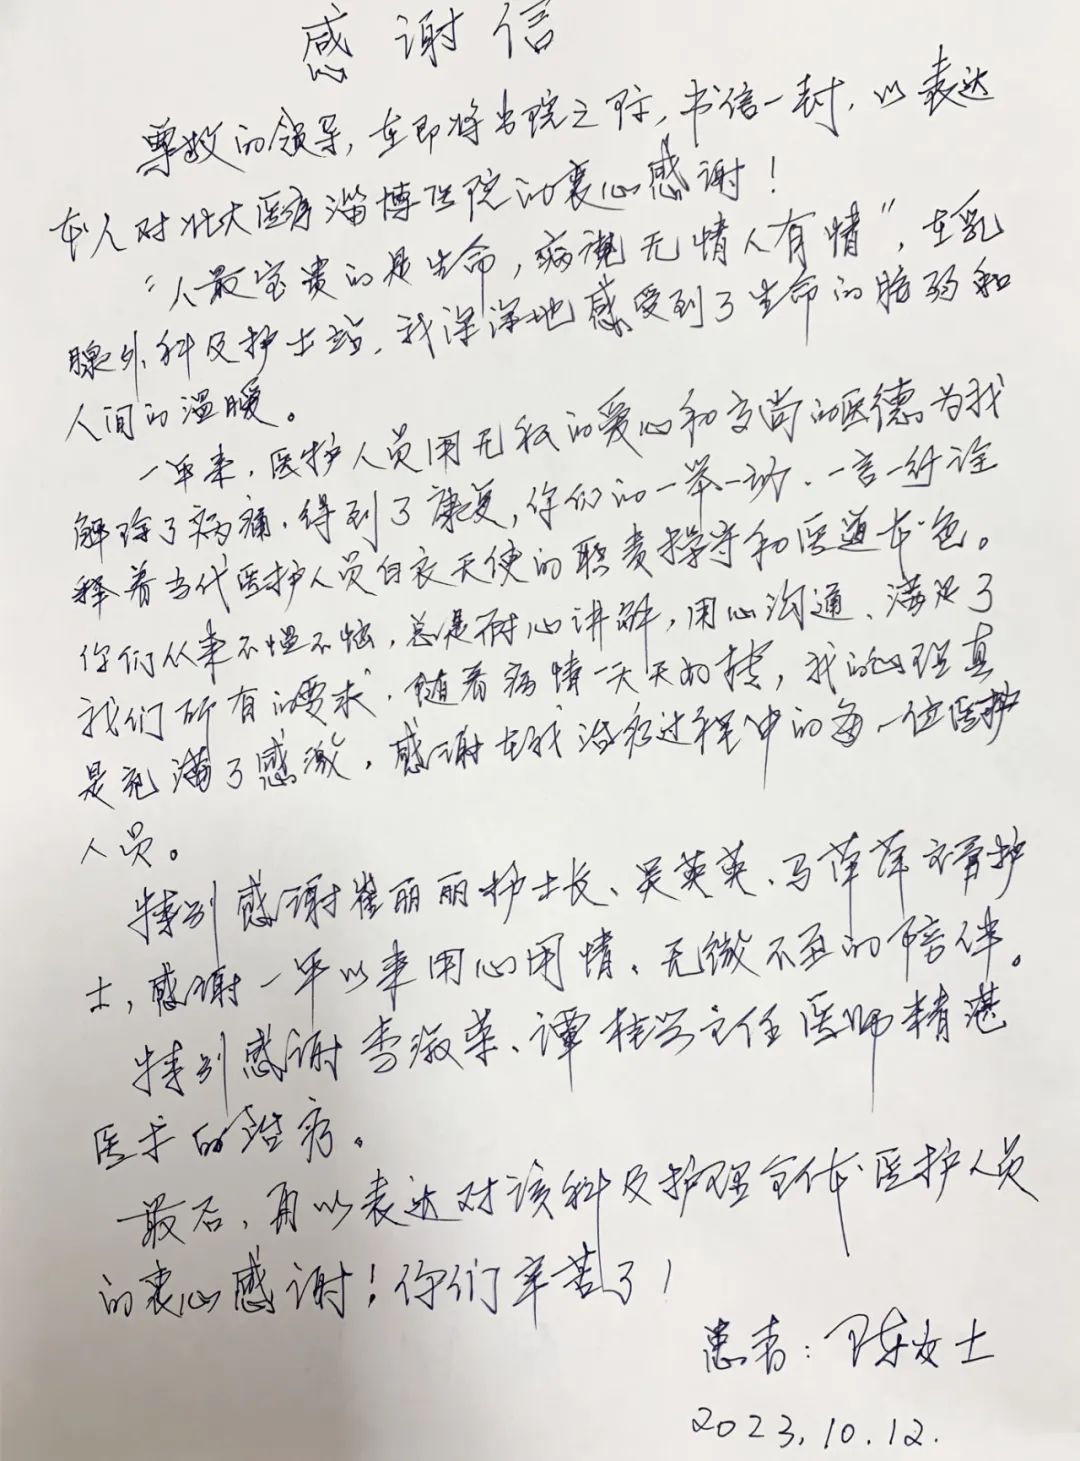 感谢信
尊敬的领导，在即将出院之际，书信一封，以表达
本人对北大医疗淄博医院的衷心感谢！
“人最宝贵的是生命，病魔无情人有情”，在乳
腺外科及护士站，我深深地感受到了生命的脆弱和
人间的温暖。
一年来，医护人员用无私的爱心和高尚的医德为我
解除了病痛，得到了康复，你们的一举一动、一言一行诠
释着当代医护人员白衣天使的职责操守和医道本色。
你们从来不愠不恼，总是耐心讲解，用心沟通、满足了
我们所有的要求，随着病情一天天好转，我的心理真
是充满了感激，感谢在我治疗过程中的每一位医护
人员。
特别感谢崔丽丽护士长、吴英英、马萍萍护
士，感谢一年以来用心用情、无微不至的陪伴。
特别感谢李淑荣、谭桂兴主任医师精湛
医术的治疗。
最后，再以表达对该科及护理全体医护人员
的衷心感谢！你们辛苦了！
患者：陈女士
2023.10.12.